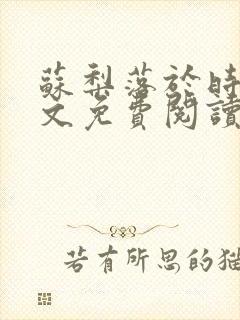 蘇梨落於時
文免費閱讀
若有所思的貓